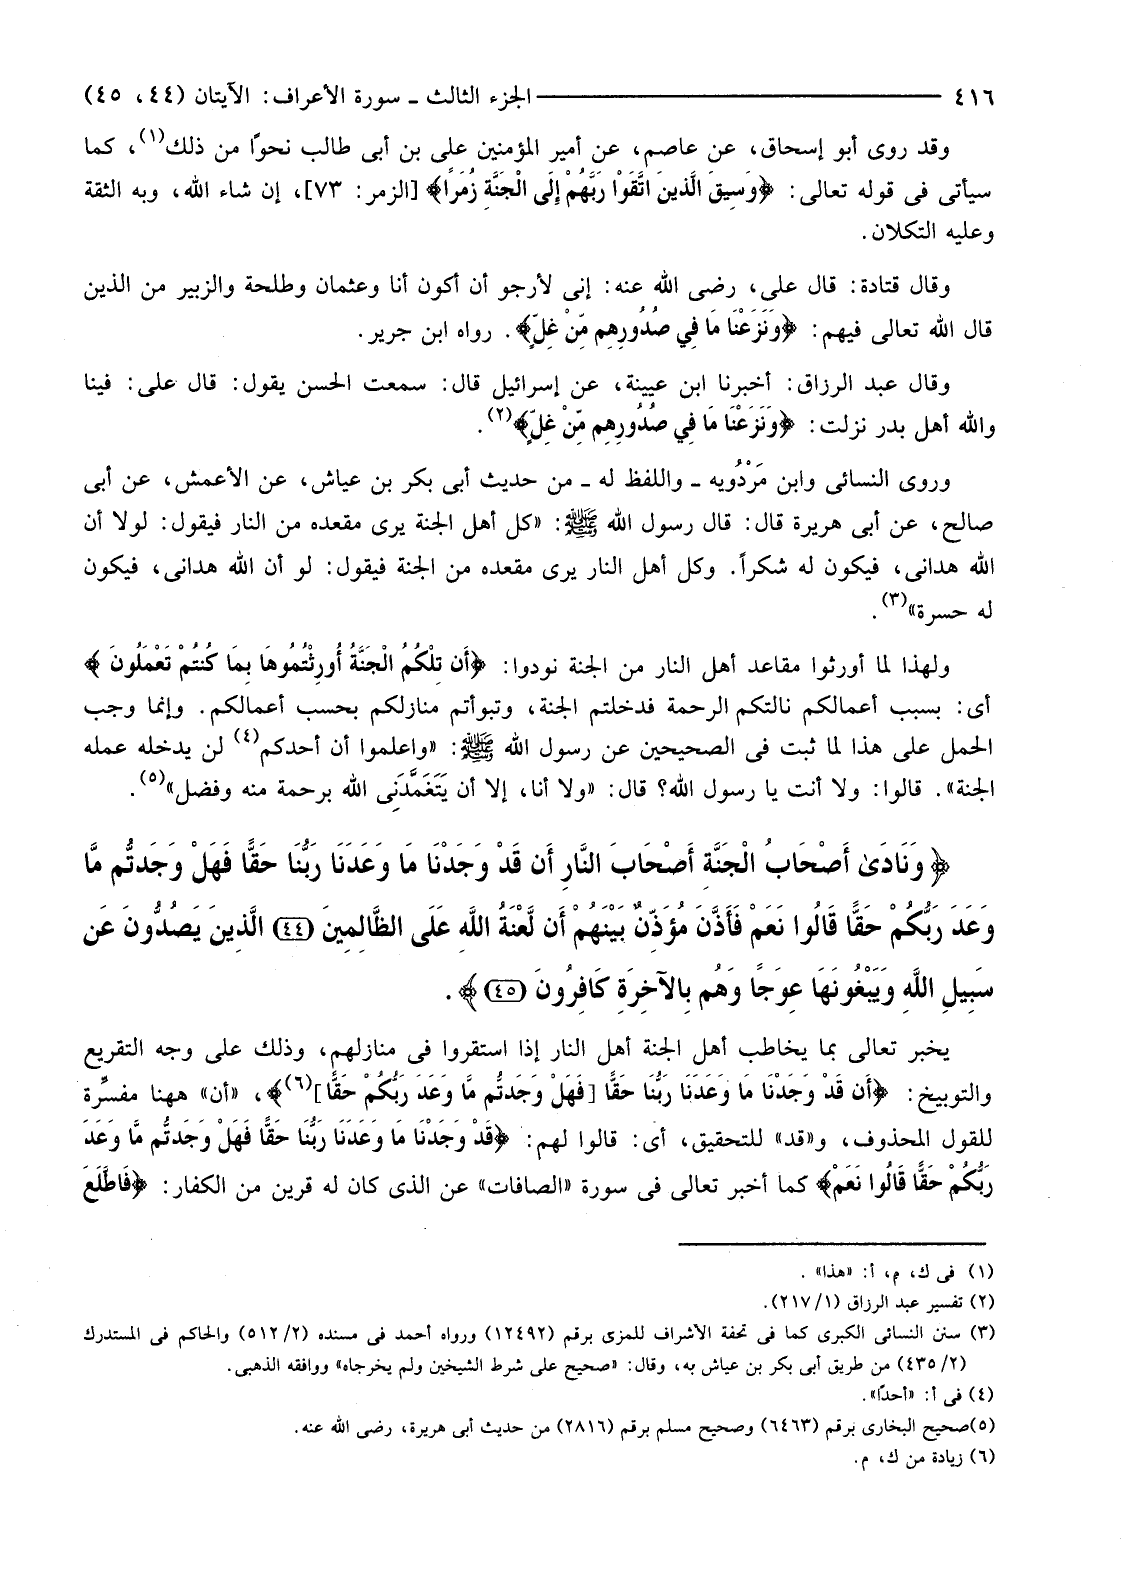 ٤١٦ ــــــــــــــــ الجزء الثالث ـ سورة الأعراف: الآيتان (٤٤، ٤٥)
وقد روى أبو إسحاق، عن عاصم، عن أمير المؤمنين على بن أبى طالب نحوًا من ذلك(١)، كما
سيأتى فى قوله تعالى: ﴿وَسِيقَ الَّذِينَ اتَّقَوْا رَبَّهُمْ إِلَى الْجَنَّةِ زُمَرًا﴾ [الزمر: ٧٣]، إن شاء الله، وبه الثقة
وعليه التكلان.
وقال قتادة: قال على، رضى الله عنه: إنى لأرجو أن أكون أنا وعثمان وطلحة والزبير من الذين
قال الله تعالى فيهم: ﴿وَنَزَعْنَا مَا فِي صُدُورِهِم مِّنْ غِلٍّ﴾. رواه ابن جرير.
وقال عبد الرزاق: أخبرنا ابن عيينة، عن إسرائيل قال: سمعت الحسن يقول: قال على: فينا
والله أهل بدر نزلت: ﴿وَنَزَعْنَا مَا فِي صُدُورِهِم مِّنْ غِلٍّ﴾(٢).
وروى النسائى وابن مَرْدُويه ـ واللفظ له ـ من حديث أبى بكر بن عياش، عن الأعمش، عن أبى
صالح، عن أبى هريرة قال: قال رسول الله ﷺ: «كل أهل الجنة يرى مقعده من النار فيقول: لولا أن
الله هدانى، فيكون له شكراً. وكل أهل النار يرى مقعده من الجنة فيقول: لو أن الله هدانى، فيكون
له حسرة»(٣).
ولهذا لما أورثوا مقاعد أهل النار من الجنة نودوا: ﴿أَن تِلْكُمُ الْجَنَّةُ أُورِثْتُمُوهَا بِمَا كُنتُمْ تَعْمَلُونَ﴾
أى: بسبب أعمالكم نالتكم الرحمة فدخلتم الجنة، وتبوأتم منازلكم بحسب أعمالكم. وإنما وجب
الحمل على هذا لما ثبت فى الصحيحين عن رسول الله ﷺ: «واعلموا أن أحدكم(٤) لن يدخله عمله
الجنة». قالوا: ولا أنت يا رسول الله؟ قال: «ولا أنا، إلا أن يَتَغَمَّدَنِى الله برحمة منه وفضل»(٥).
﴿وَنَادَىٰ أَصْحَابُ الْجَنَّةِ أَصْحَابَ النَّارِ أَن قَدْ وَجَدْنَا مَا وَعَدَنَا رَبُّنَا حَقًّا فَهَلْ وَجَدتُّم مَّا
وَعَدَ رَبُّكُمْ حَقًّا قَالُوا نَعَمْ فَأَذَّنَ مُؤَذِّنٌ بَيْنَهُمْ أَن لَّعْنَةُ اللَّهِ عَلَى الظَّالِمِينَ (٤٤) الَّذِينَ يَصُدُّونَ عَن
سَبِيلِ اللَّهِ وَيَبْغُونَهَا عِوَجًا وَهُم بِالآخِرَةِ كَافِرُونَ (٤٥)﴾.
يخبر تعالى بما يخاطب أهل الجنة أهل النار إذا استقروا فى منازلهم، وذلك على وجه التقريع
والتوبيخ: ﴿أَن قَدْ وَجَدْنَا مَا وَعَدَنَا رَبُّنَا حَقًّا [فَهَلْ وَجَدتُّم مَّا وَعَدَ رَبُّكُمْ حَقًّا](٦)﴾، «أن» ههنا مفسِّرة
للقول المحذوف، و«قد» للتحقيق، أى: قالوا لهم: ﴿قَدْ وَجَدْنَا مَا وَعَدَنَا رَبُّنَا حَقًّا فَهَلْ وَجَدتُّم مَّا وَعَدَ
رَبُّكُمْ حَقًّا قَالُوا نَعَمْ﴾ كما أخبر تعالى فى سورة «الصافات» عن الذى كان له قرين من الكفار: ﴿فَاطَّلَعَ
(١) فى ك، م، أ: «هذا».
(٢) تفسير عبد الرزاق (١/ ٢١٧).
(٣) سنن النسائى الكبرى كما فى تحفة الأشراف للمزى برقم (١٢٤٩٢) ورواه أحمد فى مسنده (٢/ ٥١٢) والحاكم فى المستدرك
(٢/ ٤٣٥) من طريق أبى بكر بن عياش به، وقال: «صحيح على شرط الشيخين ولم يخرجاه» ووافقه الذهبى.
(٤) فى أ: «أحدًا».
(٥)صحيح البخارى برقم (٦٤٦٣) وصحيح مسلم برقم (٢٨١٦) من حديث أبى هريرة، رضى الله عنه.
(٦) زيادة من ك، م.